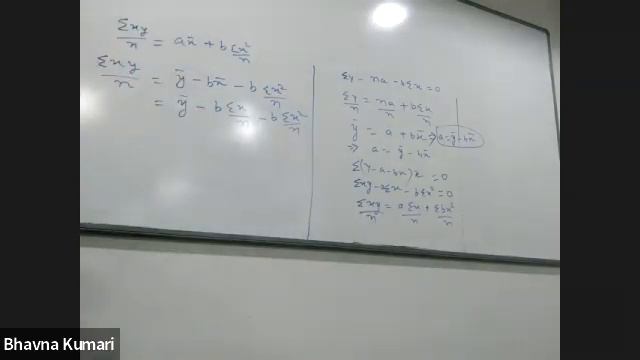 Σxy/n = ax̄ + b Σx²/n
Σxy/n = ȳ - bx̄ - b Σx²/n
= ȳ - b Σx/n - b Σx²/n
Σy - na - bΣx = 0
Σy/n = na/n + bΣx/n
ȳ = a + bx̄ ⇒ a = ȳ - bx̄
⇒ a = ȳ - bx̄
Σ(y - a - bx)x = 0
Σxy - aΣx - bΣx² = 0
Σxy/n = aΣx/n + Σbx²/n
Bhavna Kumari